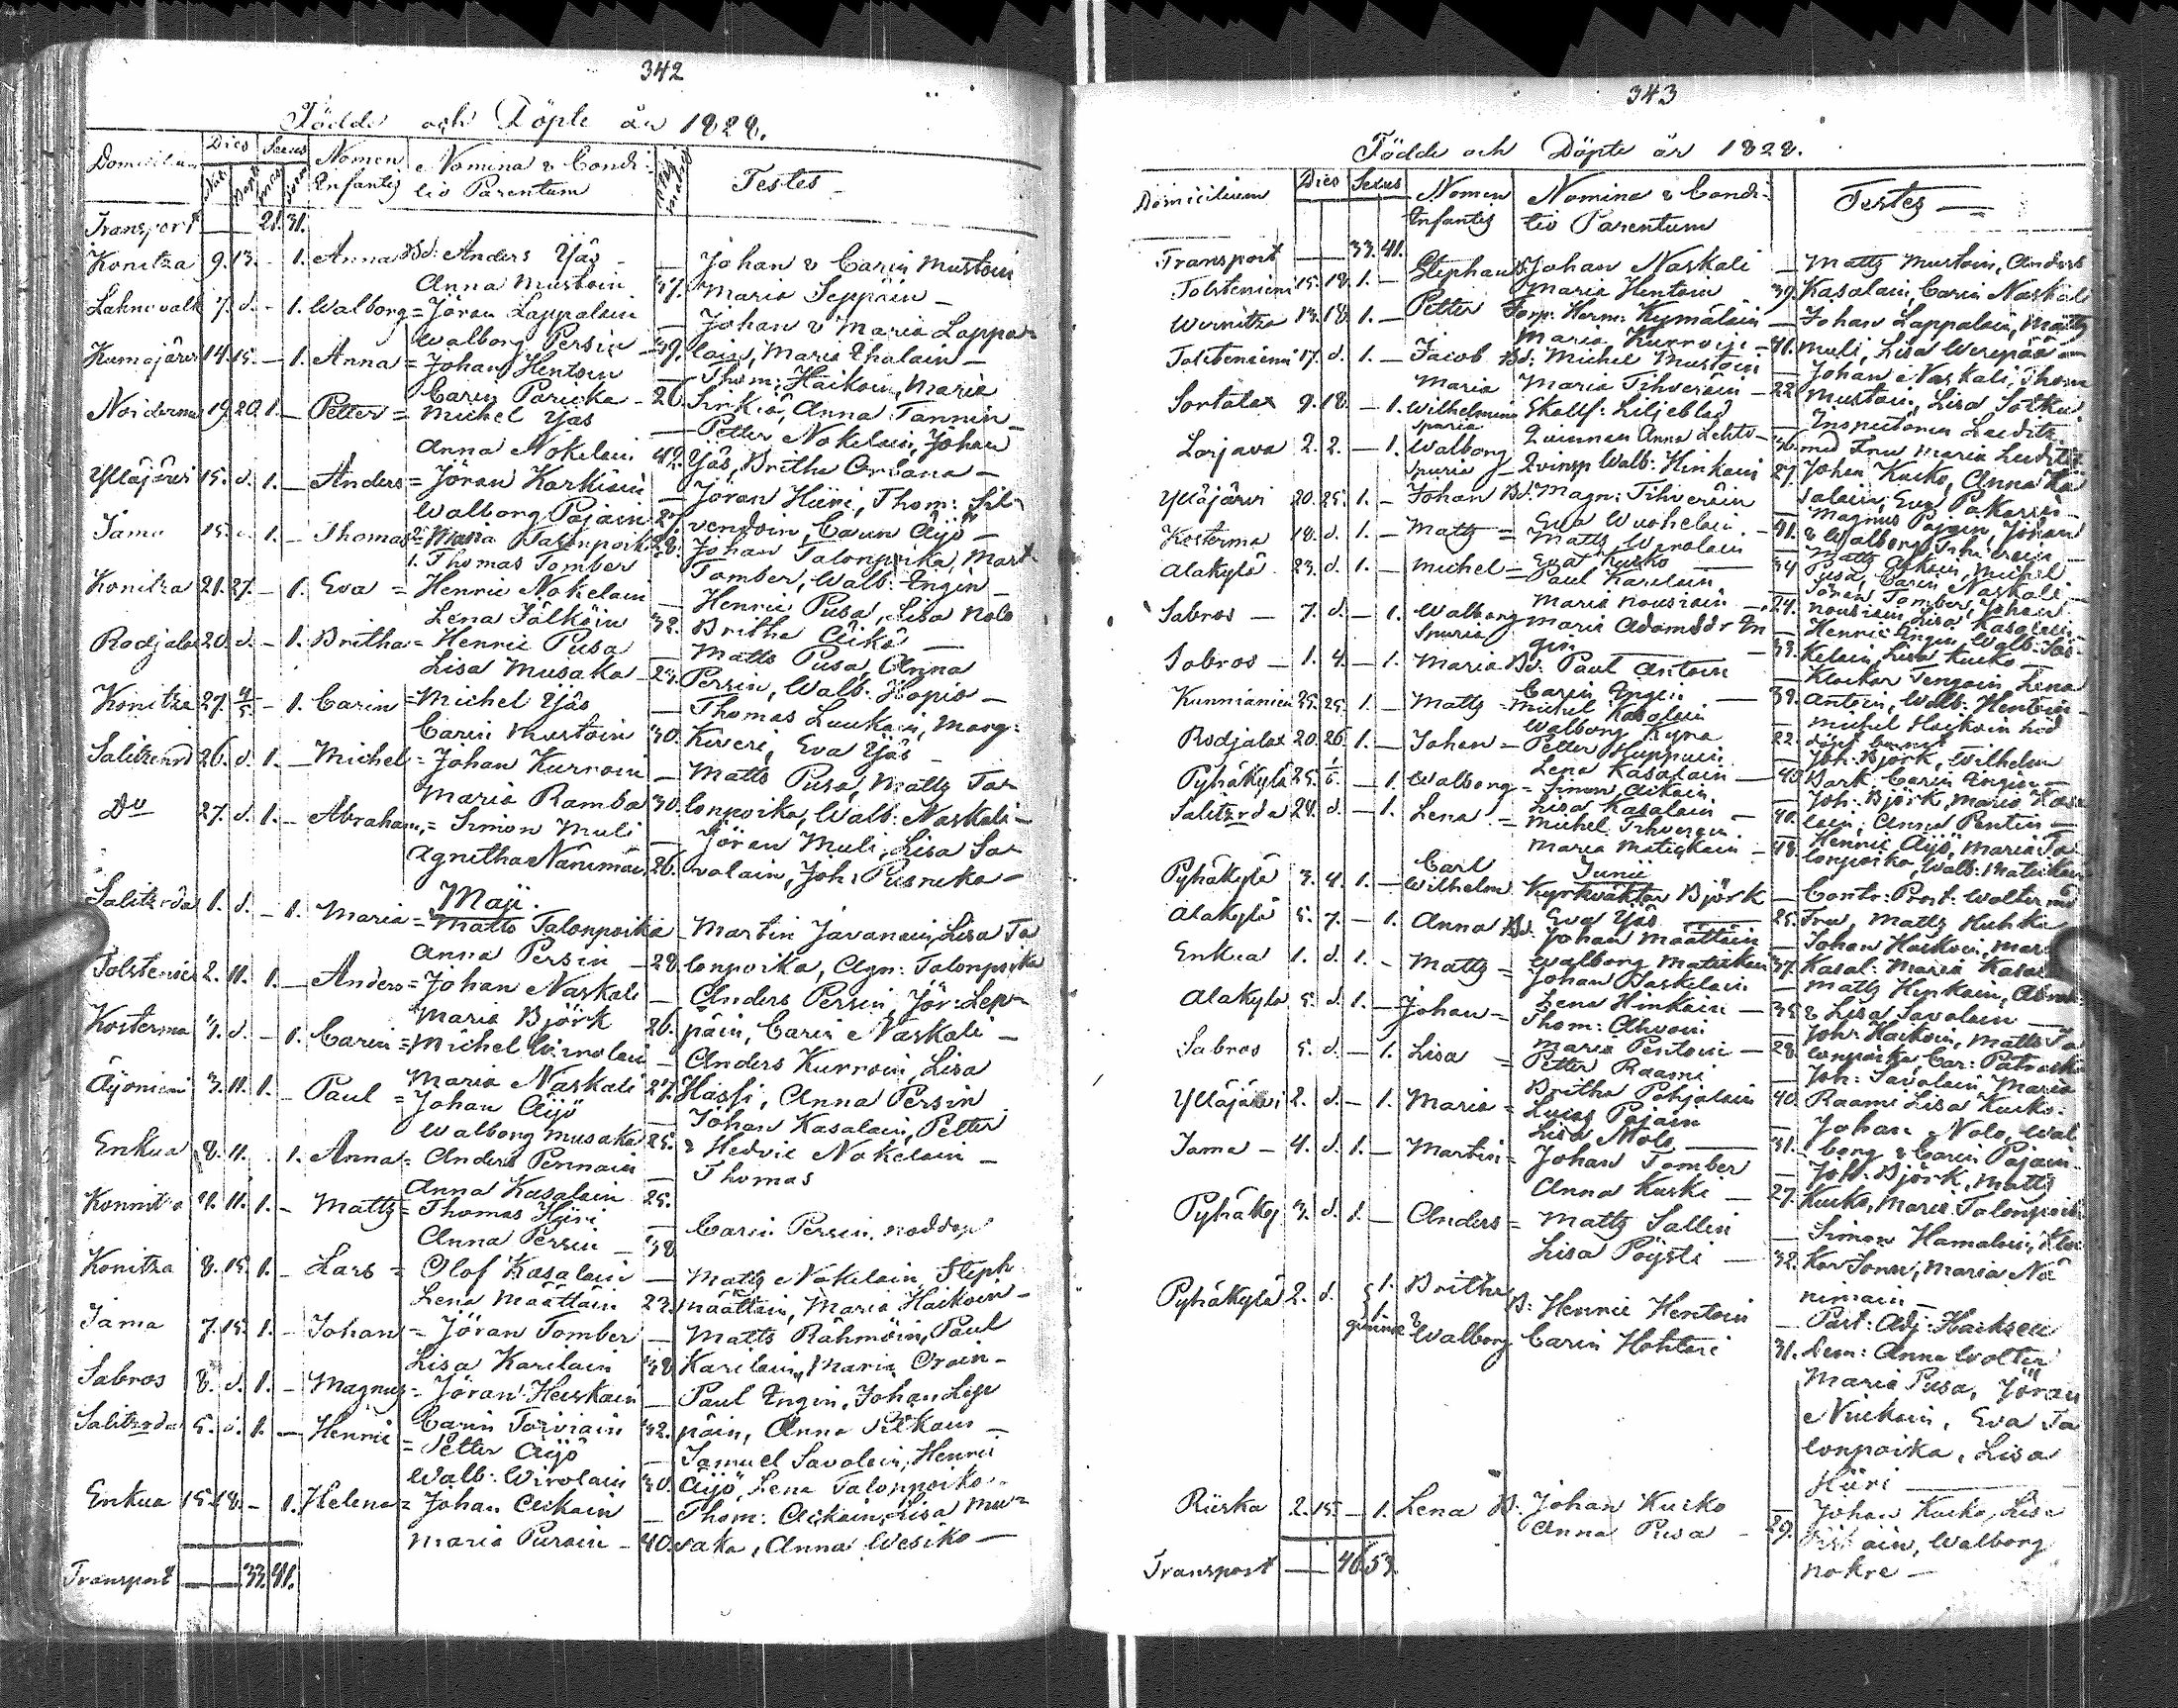 342
Födde och Döpte år 1828.
Domicilium Dies Sexus Nomen Infantis Nomina & Conditio Parentum Testes
Transport 21. 31.
Konitza 9. 13. - 1. Anna Bd: Anders Yjäs - Johan & Carin Mustoin
Anna Mustoin 37. Maria Seppäin -
7. d. - 1. Walborg = Jöran Lappalain - Johan & Maria Lappa-
Walborg Persin - 39. lain, Maria Ihalain -
14. 15. - 1. Anna = Johan Hentoin - Thom: Haikoin, Maria
Carin Paricka - 26. Sirkiä, Anna Tannin -
19. 20. 1. - Petter = Michel Yjäs - Petter Nokelain, Johan
Anna Nokelain 42. Yjäs, Britha Orbana -
Yläjärvi 15. d. 1. - Anders = Jöran Karkiain - Jöran Hiiri, Thom: Sil-
Walborg Pajain 27. vendoin, Carin Äijö -
Jama 15. d. 1. - Thomas 2. Maria Talonpoika 28. Johan Talonpoika, Mart
1. Thomas Tomber Tomber, Walb: Engin -
Konitza 21. 27. - 1. Eva = Henric Nokelain - Henric Pusa, Lisa Nolo
Lena Jälköin 32. Britha Äikä -
20. d. - 1. Britha = Henric Pusa - Matts Pusa, Anna
Lisa Musaka - 24. Persin, Walb: Hopia -
Konitza 27. 4/5 - 1. Carin = Michel Yjäs - Thomas Laukain, Marg:
Carin Mustoin 30. Kiveri, Eva Yjäs -
26. d. 1. - Michel = Johan Kurroin - Matts Pusa, Matts Ta-
Maria Ramba 30. lonpoika, Walb: Naskali -
Do 27. d. 1. - Abraham = Simon Muli - Jöran Muli, Lisa Sa-
Agnetha Nänimäin 26. volain, Joh:
Maji.
1. d. - 1. Maria = Matts Talonpoika - Martin Javanain, Lisa Ta
Anna Persin - 28. lonpoika, Agn: Talonpoika
2. 11. 1. - Anders = Johan Naskali - Anders Persin, Jör: Lep-
Maria Björk 26. päin, Carin Naskali -
Kosterma 3. d. - 1. Carin = Michel Wirolain - Anders Kurroin, Lisa
Maria Naskali 27. Hassi, Anna Persin
Äijöniemi 3. 11. 1. - Paul = Johan Äijö - Johan Kasalain, Petter
Walborg Musaka 25. & Hedvic Nokelain -
Enkua 8. 11. 1. Anna = Anders Pennain - Thomas
Anna Kasalain 25.
Konnitsa 8. 11. 1. - Matts = Thomas Hijri - Carin Persin, nöddop
Anna Persin - 38
Konitza 8. 15. 1. - Lars = Olof Kasalain - Matts Nokelain, Steph
Lena Määttäin 23. Määttäin, Maria Haikoin -
Jama 7. 15. 1. - Johan = Jöran Tomber - Matts Rähmöin, Paul
Lisa Karilain 38 Karilain, Maria
Sabros 8. d. 1. - Magnus = Jöran Heiskain - Paul Engin, Johan Lep
Carin Torviain 32. päin, Anna Pitkain -
Salitsrda 5. d. 1. - Henric = Petter Äijö - Samuel Savolain, Henric
Walb: Wirolain 30. Äijö, Lena Talonpoika -
Enkua 15. 18. - 1. Helena = Johan Äikäin - Thom: Äikäin, Lisa Mu-
Maria Purain - 40. saka, Anna Wesiko -
Transport 33. 41.
343
Födde och Döpte år 1828.
Domicilium Dies Sexus Nomen Infantis Nomina & Conditio Parentum Testes
Transport 33. 41.
Tolsteniemi 15. 18. 1. - Stephan Bd: Johan Naskali - Matts Mustoin, Anders
Maria Hentoin 39. Kasalain, Carin Naskali
Wernitza 13. 18. 1. - Petter Torp: Herm: Kymäläin - Johan Lappalain, Matts
Maria Kurroin - 41. Muli, Lisa Werepää -
17. d. 1. - Jacob Bd: Michel Mustoin - Johan Naskali, Thom
Maria Tihveräin - 22. Mustoin, Lisa
Sortalax 9. 18. - 1. Maria Wilhelmina Skallf: Liljeblad - Inspectoren
spuria Quinnan Anna Lehto - 36. med Fru Maria
Lorjava 2. 2. - 1. Walborg spuria Qvinsp Walb: Hinkain 27. Johan Kuiko, Anna Ka
salain, Eva Pakarin -
Ylläjärvi 20. 25. 1. - Johan Bd: Magn: Tihveräin - Magnus Pajain, Jöran
Eva - 41. & Walborg Tihveräin -
Kosterma 18. d. 1. - Matts = Matts Wirolain - Matts Michel
Eva Kuiko - 34 Pusa, Carin Naskali -
Alakylä 23. d. 1. - Michel = Paul Karilain - Jöran Tomber, Johan
Maria Nousiain - 24. Nousiain, Lisa Kasalain -
Sabros - 7. d. - 1. Walborg spuria Maria Adamsdr En - Henric Engin, Walb:
gin - 33. kelain, Lisa Kuiko -
Sabros - 1. 4. - 1. Maria Bd: Paul Antoin - Klockar Tengain, Lena
Carin Engin - 39. Antoin, Walb: Hentoin -
25. 25. 1. - Matts = Michel Kasalain - Michel Haikoin nöd
Walborg Kyna 22. döpt barnet
Rodjalax 20. 26. 1. - Johan = Petter Huppoin - Joh: Björk, Wilhelm
Lena Kasalain - 40. Bark, Carin Engin -
Pyhäkylä 25. 1/6 - 1. Walborg = Simon Äikäin - Joh: Björk, Maria Kasa
Lisa Kasalain - 40. lain, Anna Pentin -
Salitsrda 24. d. - 1. Lena = Michel Tihverin - Henric Äijö, Maria Ta
Maria Matiskain - 48. lonpoika, Walb: Matiskain
Junii
Pyhäkylä 3. 4. 1. - Carl Wilhelm Kyrkväktar Björk - Contr: Prost: Wolter med
Eva Yjäs - 25. Fru, Matts Huhka
Alakylä 5. 7. - 1. Anna Bd: Johan Määttäin - Johan Haikoin, Mar
Walborg Matiskain 37. Kasal: Maria Kasal
Enkua 1. d. 1. - Matts = Johan Paskelain - Matts Henkain,
Lena Hinkain - 35. & Lisa Savolain -
Alakylä 5. d. 1. - Johan = Thom: Ahvoin - Joh: Haikoin, Matts Ta
Maria Pentoin - 28. lonpoika, Car:
Sabros 5. d. - 1. Lisa = Petter Raami - Joh: Savolain, Maria
Britha Pohjalain 40. Raami, Lisa Kuiko.
Ylläjärvi 2. d. - 1. Maria = Lucas Pajain - Johan Nolo, Wal
Lisa Nolo - 31. borg & Carin Pajain
Jama - 4. d. 1. - Martin = Johan Tomber - Joh: Björk, Matts
Anna Kuiko - 27. Kuiko, Maria Talonpoika
Pyhäkyl 3. d. 1. - Anders = Matts Sallin - Simon Hamalain, Kloc
Lisa Pöysti - 32. kar Maria Nä
nimäin -
Pyhäkylä 2. d. 1. Britha B: Henric Hentoin - Past: Adj: Hacksell
& Walborg Carin Hohtari 31. Dem: Anna Wolter
Maria Pusa, Jöran
Nuikain, Eva Ta
lonpoika, Lisa
Hiiri -
Riiska 2. 15. - 1. Lena B: Johan Kuiko - Johan Kuiko, Lisa
Anna Pusa - 29. Walborg
Nokre -
Transport 46. 53.